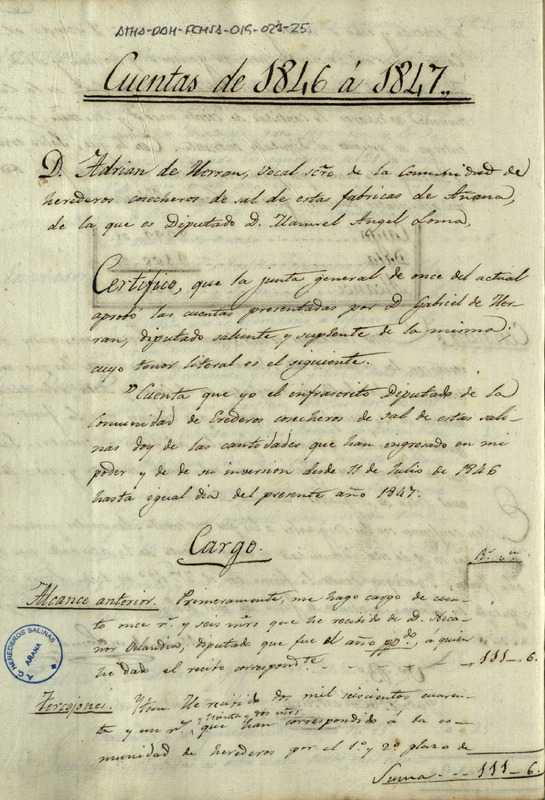 ATHA-DAH-FCHSA-019-023-25
Cuentas de 1846 á 1847.,
D. Adrian de Herran, vocal scrio de la Comunidad de
herederos cosecheros de sal de estas fabricas de Añana,
de la que es Diputado D. Manuel Angel Loma,
Certifico, que la junta general de once del actual
aprobó las cuentas presentadas por D. Gabriel de Her-
ran, diputado saliente y suplente de la misma;
cuyo tenor literal es el siguiente.
"Cuenta que yo el infrascrito Diputado de la
Comunidad de Erederos cosecheros de sal de estas sali-
nas doy de las cantidades que han ingresado en mi
poder y de de su inversion desde 11 de Julio de 1846
hasta igual dia del presente año 1847.
Cargo.
Rs. vn.
Alcance anterior. Primeramente, me hago cargo de cien-
to once rs. y seis mrs que he recibido de D. Nica-
nor Orlandia, diputado que fue el año ppdo, a quien
he dado el recibo correspondte. - - - 111 - 6.
Item He recibido dos mil seiscientos cuaren-
ta y un rs. y treinta y dos mrs que han correspondido á la co-
munidad de herederos por el 1º y 2º plazo de
Suma - - - 111 - 6.
A. C. HEREDEROS SALINAS
AÑANA